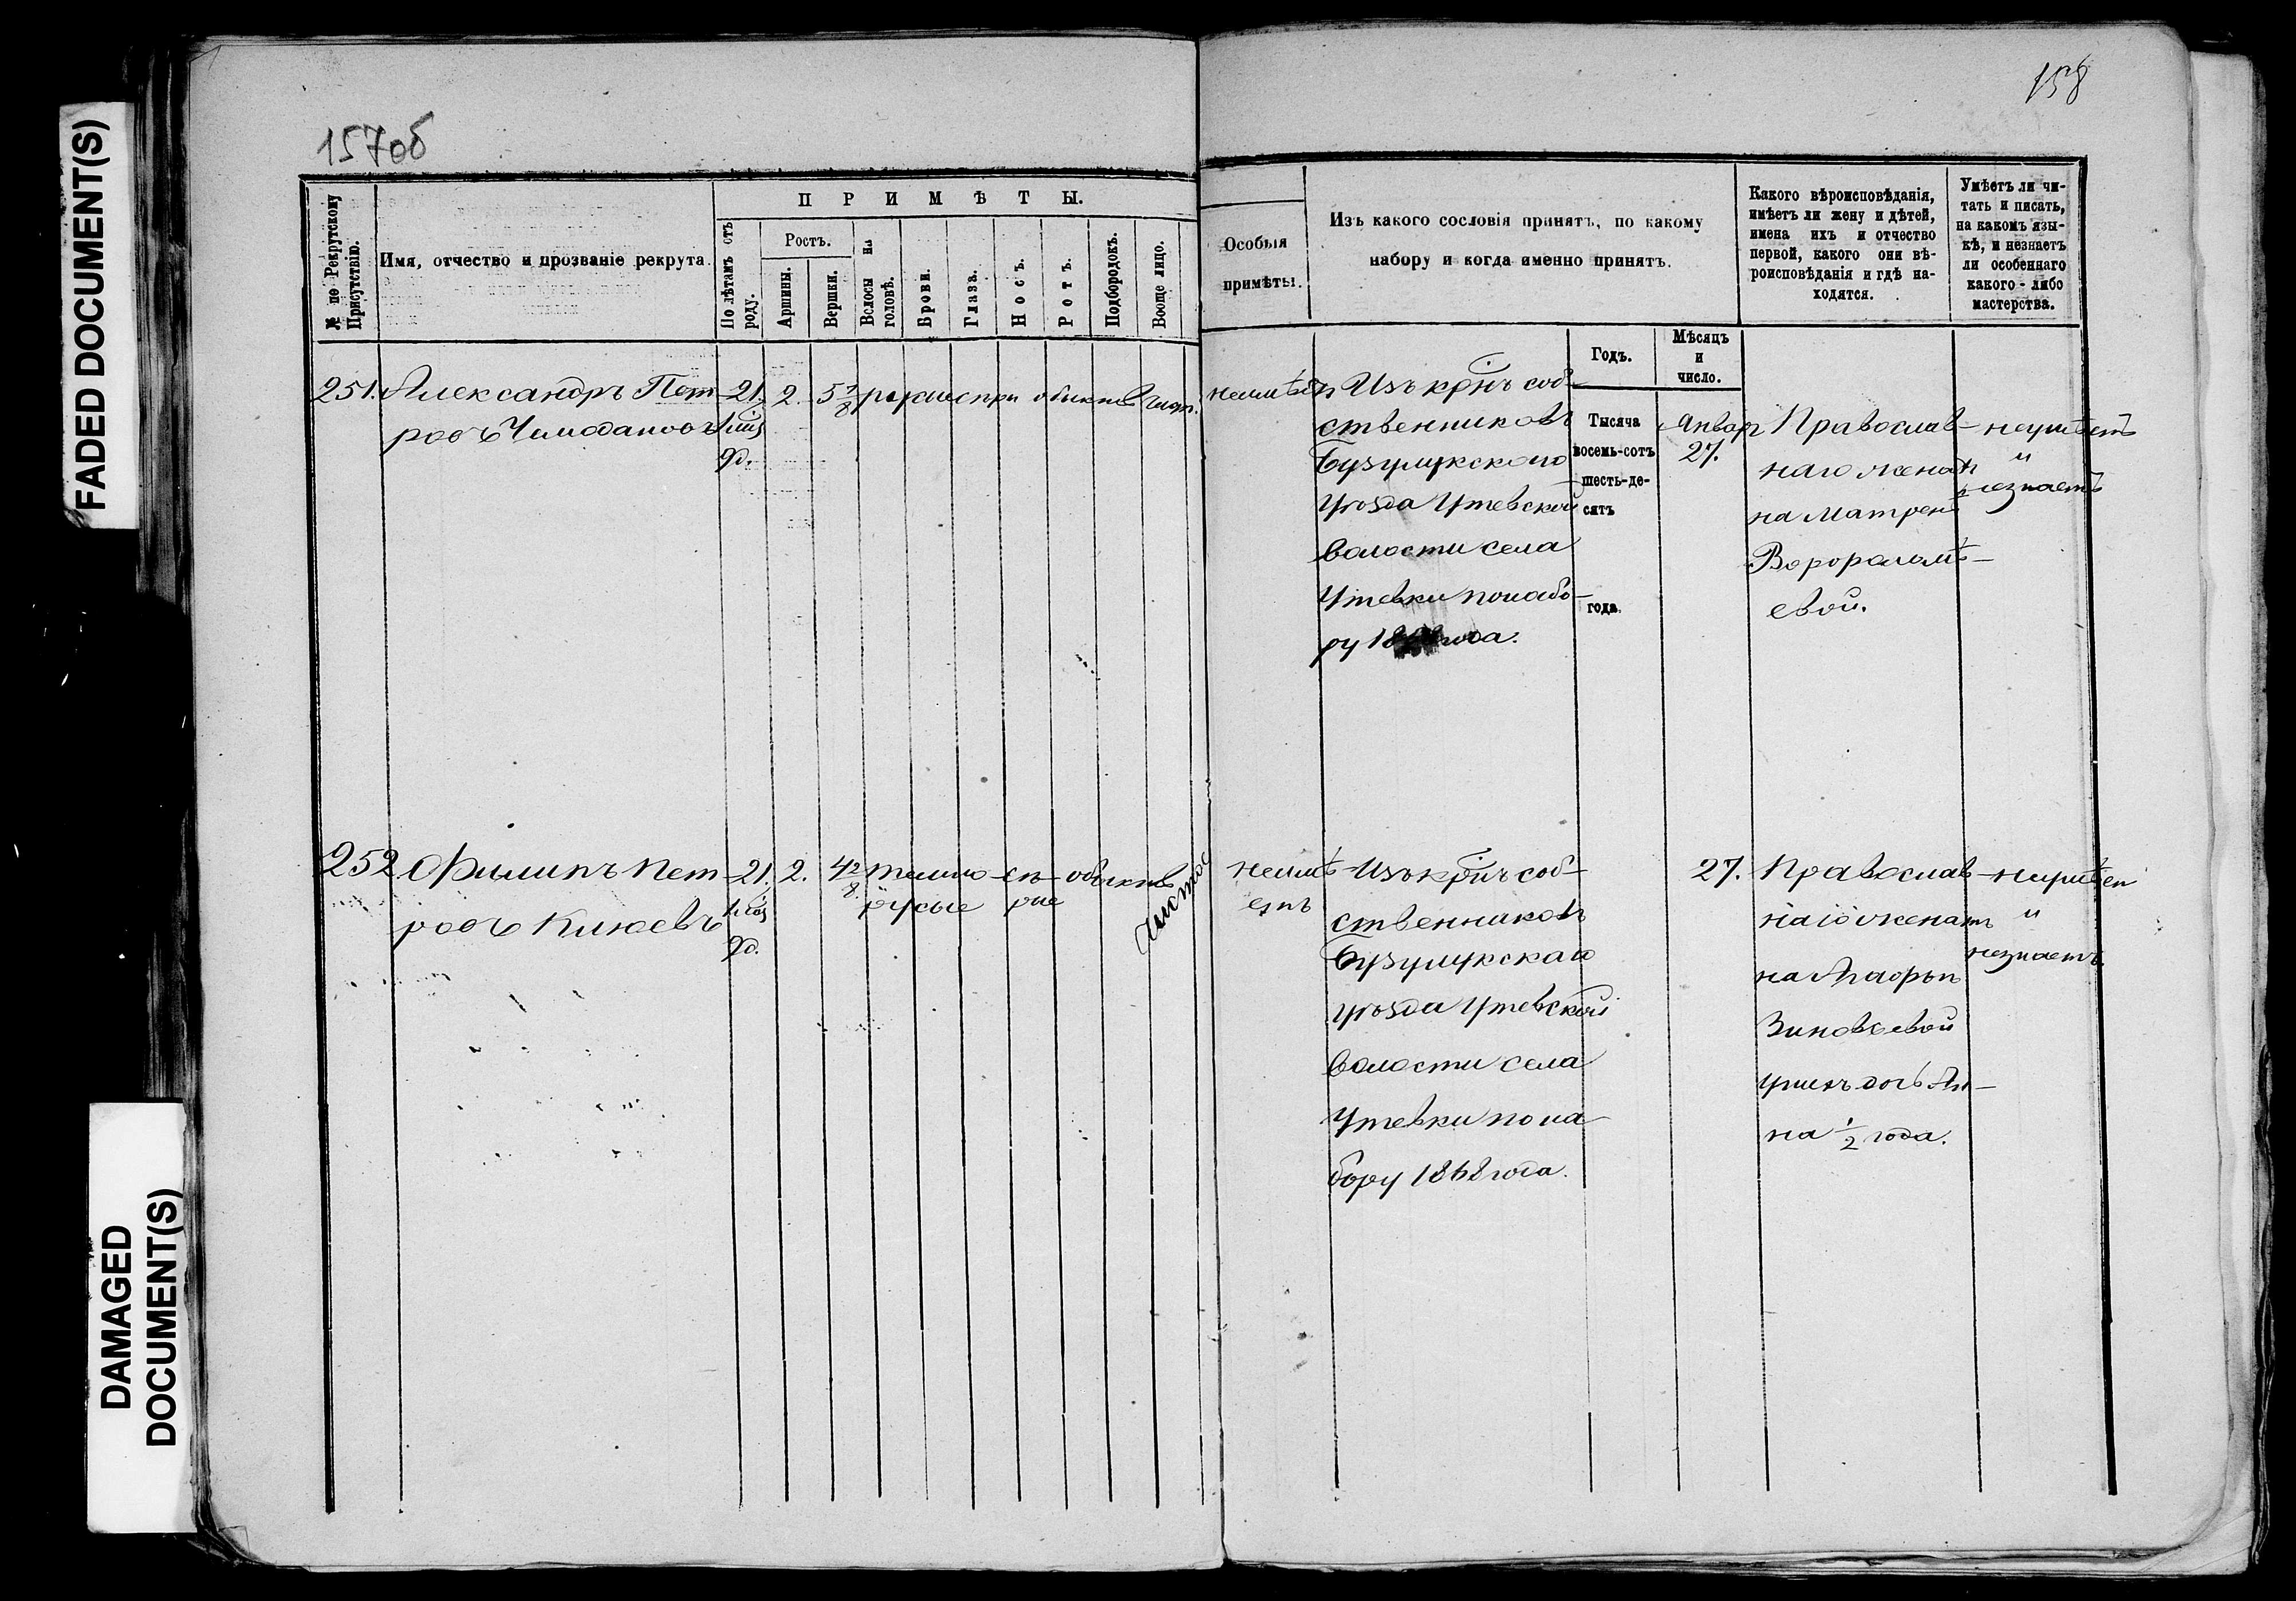 FADED DOCUMENT(S)
DAMAGED
DOCUMENT(S)
157об
158
№ по Рекрутскому
Присутствію.
Имя, отчество и прозваніе рекрута.
ПРИМѢТЫ.
По лѣтамъ отъ
роду.
Ростъ.
Аршины.
Вершки.
Волосы на
головѣ.
Брови.
Глаза.
Носъ.
Ротъ.
Подбородокъ.
Вооще лицо.
Особыя
примѣты.
Изъ какого сословія принятъ, по какому
набору и когда именно принятъ.
Годъ.
Мѣсяцъ
и
число.
Какого вѣроисповѣданія,
имѣетъ ли жену и дѣтей,
имена ихъ и отчество
первой, какого они вѣ-
роисповѣданія и гдѣ на-
ходятся.
Умѣетъ ли чи-
тать и писать,
на какомъ язы-
кѣ, и незнаетъ
ли особеннаго
какого-либо
мастерства.
251. Александръ Пет
ровъ Чемодановъ
21.
2.
5
неимѣетъ
Изъ крнъ соб-
ственниковъ
Бузулукскаго
уѣзда Утевской
волости села
Утевки по набо-
ру года.
Тысяча
восемь-сотъ
шесть-де-
сятъ
года.
Январ
27.
Православ-
наго женатъ
на Матрене
евой.
неумѣетъ
и
незнаетъ
252 Филипъ Пет
ровъ Клюевъ
21.
2.
4 2/8
темно
русые
сѣ-
рые
обыкнов
чистое
неимѣ-
етъ
Изъ крнъ соб-
ственниковъ
Бузулукскаго
уѣзда Утевской
волости села
Утевки по на
бору 1868 года.
27.
Православ-
наго женатъ
на Агафьѣ
Зиновьевой
у нихъ дочь Ан-
на 1/2 года.
неумѣет
и
незнаетъ